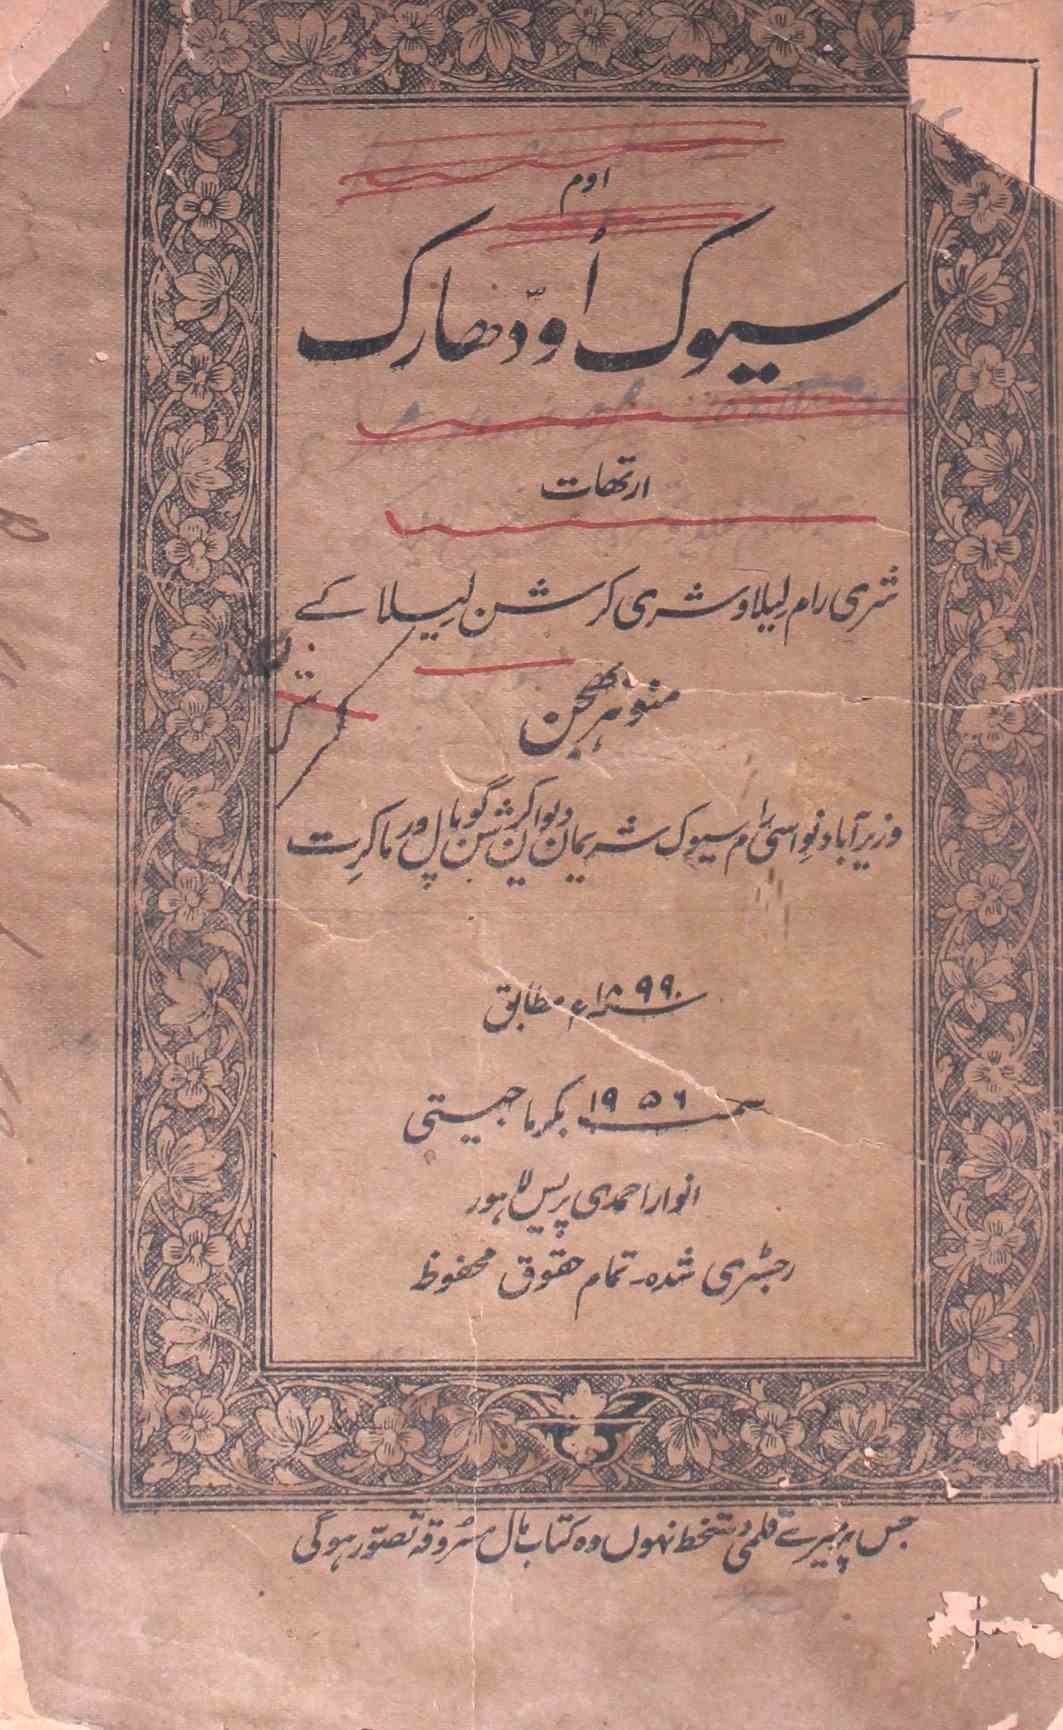 اوم
سیوک اُودّھارک
ارتھات
شری رام لیلا و شری کرشن لیلا کے
منوہر بھجن
وزیرآباد نواسی رام سیوک شریمان دیوان کرشن گوپال ورما کرِت
۱۸۹۹ء مطابق
سمت ۱۹۵۶ بکرماجیتی
انوار احمدی پریس لاہور
رجسٹری شدہ۔ تمام حقوق محفوظ
جس پر میرے قلمی دستخط نہوں وہ کتاب مال مسروقہ تصوّر ہوگی